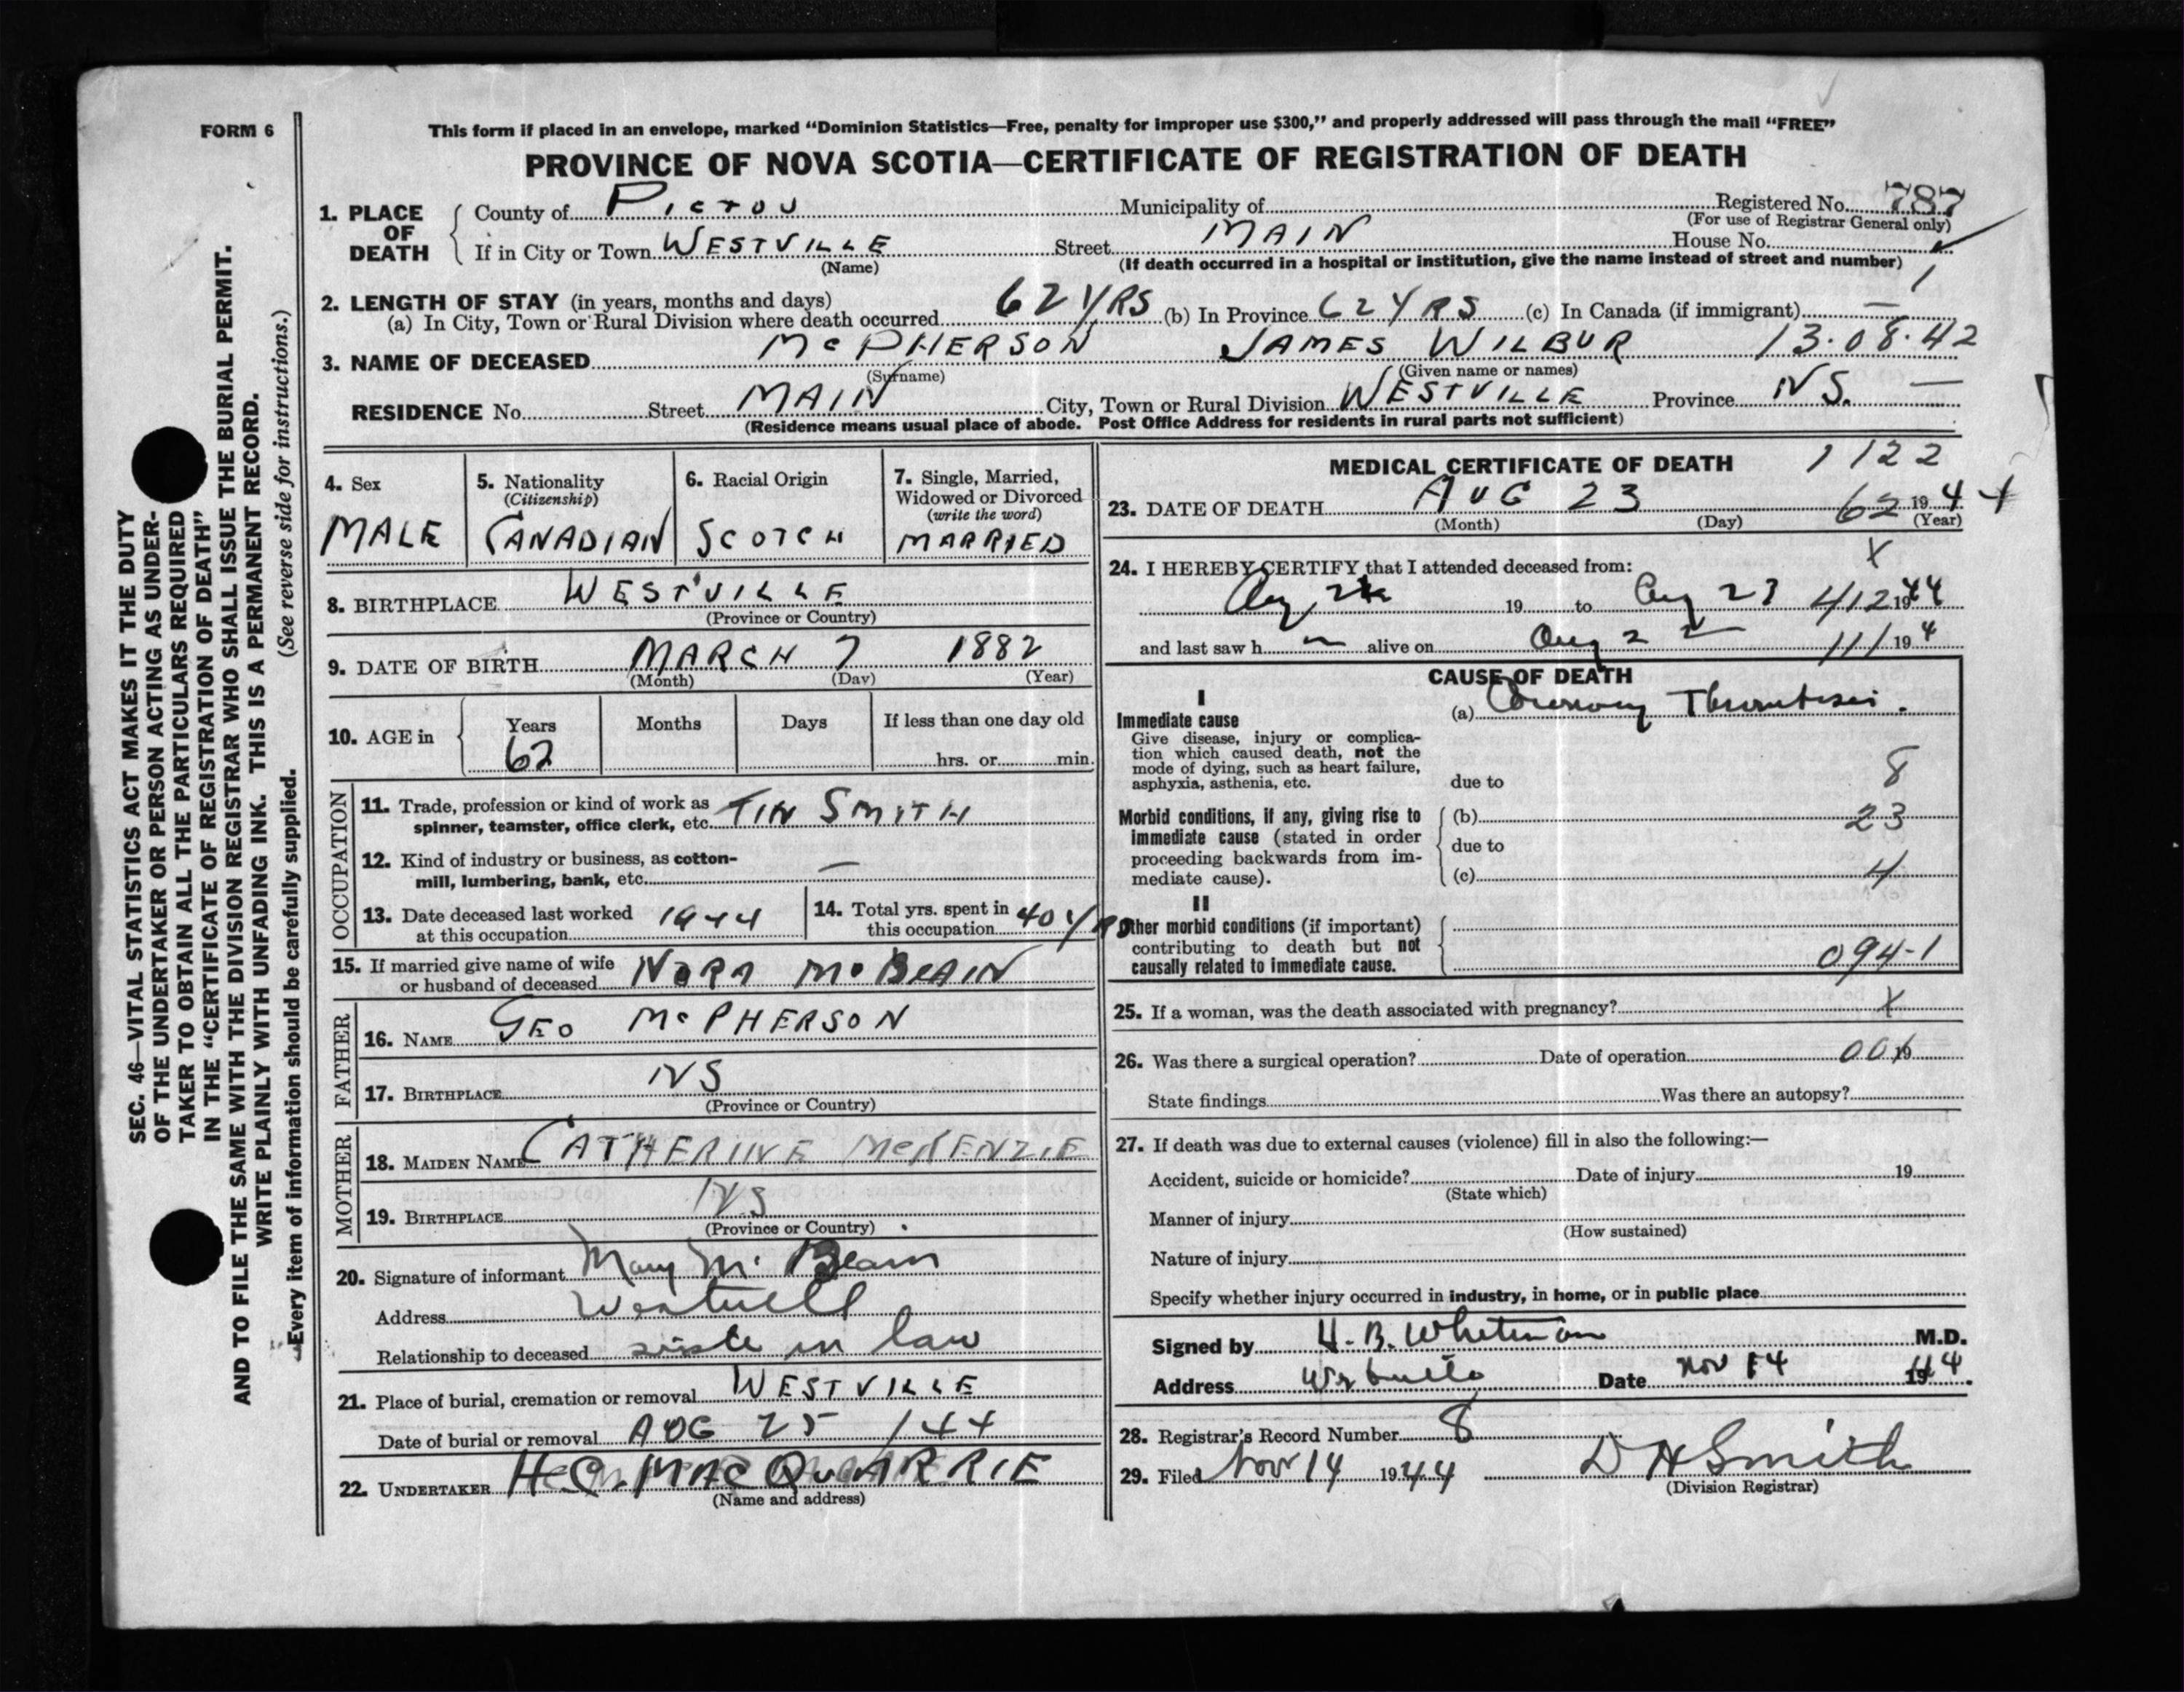 FORM 6
This form if placed in an envelope, marked “Dominion Statistics—Free, penalty for improper use $300,” and properly addressed will pass through the mail “FREE”
PROVINCE OF NOVA SCOTIA—CERTIFICATE OF REGISTRATION OF DEATH
SEC. 46—VITAL STATISTICS ACT MAKES IT THE DUTY
OF THE UNDERTAKER OR PERSON ACTING AS UNDER-
TAKER TO OBTAIN ALL THE PARTICULARS REQUIRED
IN THE “CERTIFICATE OF REGISTRATION OF DEATH”
AND TO FILE THE SAME WITH THE DIVISION REGISTRAR WHO SHALL ISSUE THE BURIAL PERMIT.
WRITE PLAINLY WITH UNFADING INK. THIS IS A PERMANENT RECORD.
Every item of information should be carefully supplied. (See reverse side for instructions.)
1. PLACE OF DEATH
County of PICTOU Municipality of Registered No. 787
(For use of Registrar General only)
If in City or Town WESTVILLE Street MAIN House No.
(Name) (If death occurred in a hospital or institution, give the name instead of street and number)
1
2. LENGTH OF STAY (in years, months and days)
(a) In City, Town or Rural Division where death occurred 62 YRS (b) In Province 62 YRS (c) In Canada (if immigrant) —
3. NAME OF DECEASED McPHERSON JAMES WILBUR 13.08.42
(Surname) (Given name or names)
RESIDENCE No. Street MAIN City, Town or Rural Division WESTVILLE Province NS. —
(Residence means usual place of abode. Post Office Address for residents in rural parts not sufficient)
4. Sex
MALE
5. Nationality
(Citizenship)
CANADIAN
6. Racial Origin
SCOTCH
7. Single, Married,
Widowed or Divorced
(write the word)
MARRIED
8. BIRTHPLACE WESTVILLE
(Province or Country)
9. DATE OF BIRTH MARCH 7 1882
(Month) (Day) (Year)
10. AGE in Years Months Days If less than one day old
62 hrs. or min.
OCCUPATION
11. Trade, profession or kind of work as
spinner, teamster, office clerk, etc. TIN SMITH
12. Kind of industry or business, as cotton-
mill, lumbering, bank, etc. —
13. Date deceased last worked
at this occupation 1944
14. Total yrs. spent in
this occupation 40 YRS
15. If married give name of wife
or husband of deceased NORA McBEAIN
FATHER
16. NAME GEO McPHERSON
17. BIRTHPLACE NS
(Province or Country)
MOTHER
18. MAIDEN NAME CATHERINE McKENZIE
19. BIRTHPLACE NS
(Province or Country)
20. Signature of informant Mary Mc Beain
Address
Relationship to deceased in law
21. Place of burial, cremation or removal WESTVILLE
Date of burial or removal AUG 25 / 44
22. UNDERTAKER H.C. MACQUARRIE
(Name and address)
MEDICAL CERTIFICATE OF DEATH 1122
23. DATE OF DEATH AUG 23 62 1944
(Month) (Day) (Year)
X
24. I HEREBY CERTIFY that I attended deceased from:
Aug 19 to Aug 23 412 1944
and last saw h alive on Aug 22 111 194
CAUSE OF DEATH
I
Immediate cause
Give disease, injury or complica-
tion which caused death, not the
mode of dying, such as heart failure,
asphyxia, asthenia, etc.
(a) Coronary Thrombosis.
due to 8
Morbid conditions, if any, giving rise to
immediate cause (stated in order
proceeding backwards from im-
mediate cause).
(b) 23
due to
(c) 4
II
Other morbid conditions (if important)
contributing to death but not
causally related to immediate cause.
094-1
25. If a woman, was the death associated with pregnancy? X
26. Was there a surgical operation? Date of operation 19
State findings Was there an autopsy?
27. If death was due to external causes (violence) fill in also the following:—
Accident, suicide or homicide? Date of injury 19
(State which)
Manner of injury
(How sustained)
Nature of injury
Specify whether injury occurred in industry, in home, or in public place
Signed by H. B. Whitman M.D.
Address Date Nov 14 1944.
28. Registrar's Record Number 8
29. Filed Nov 14 1944 D H Smith
(Division Registrar)